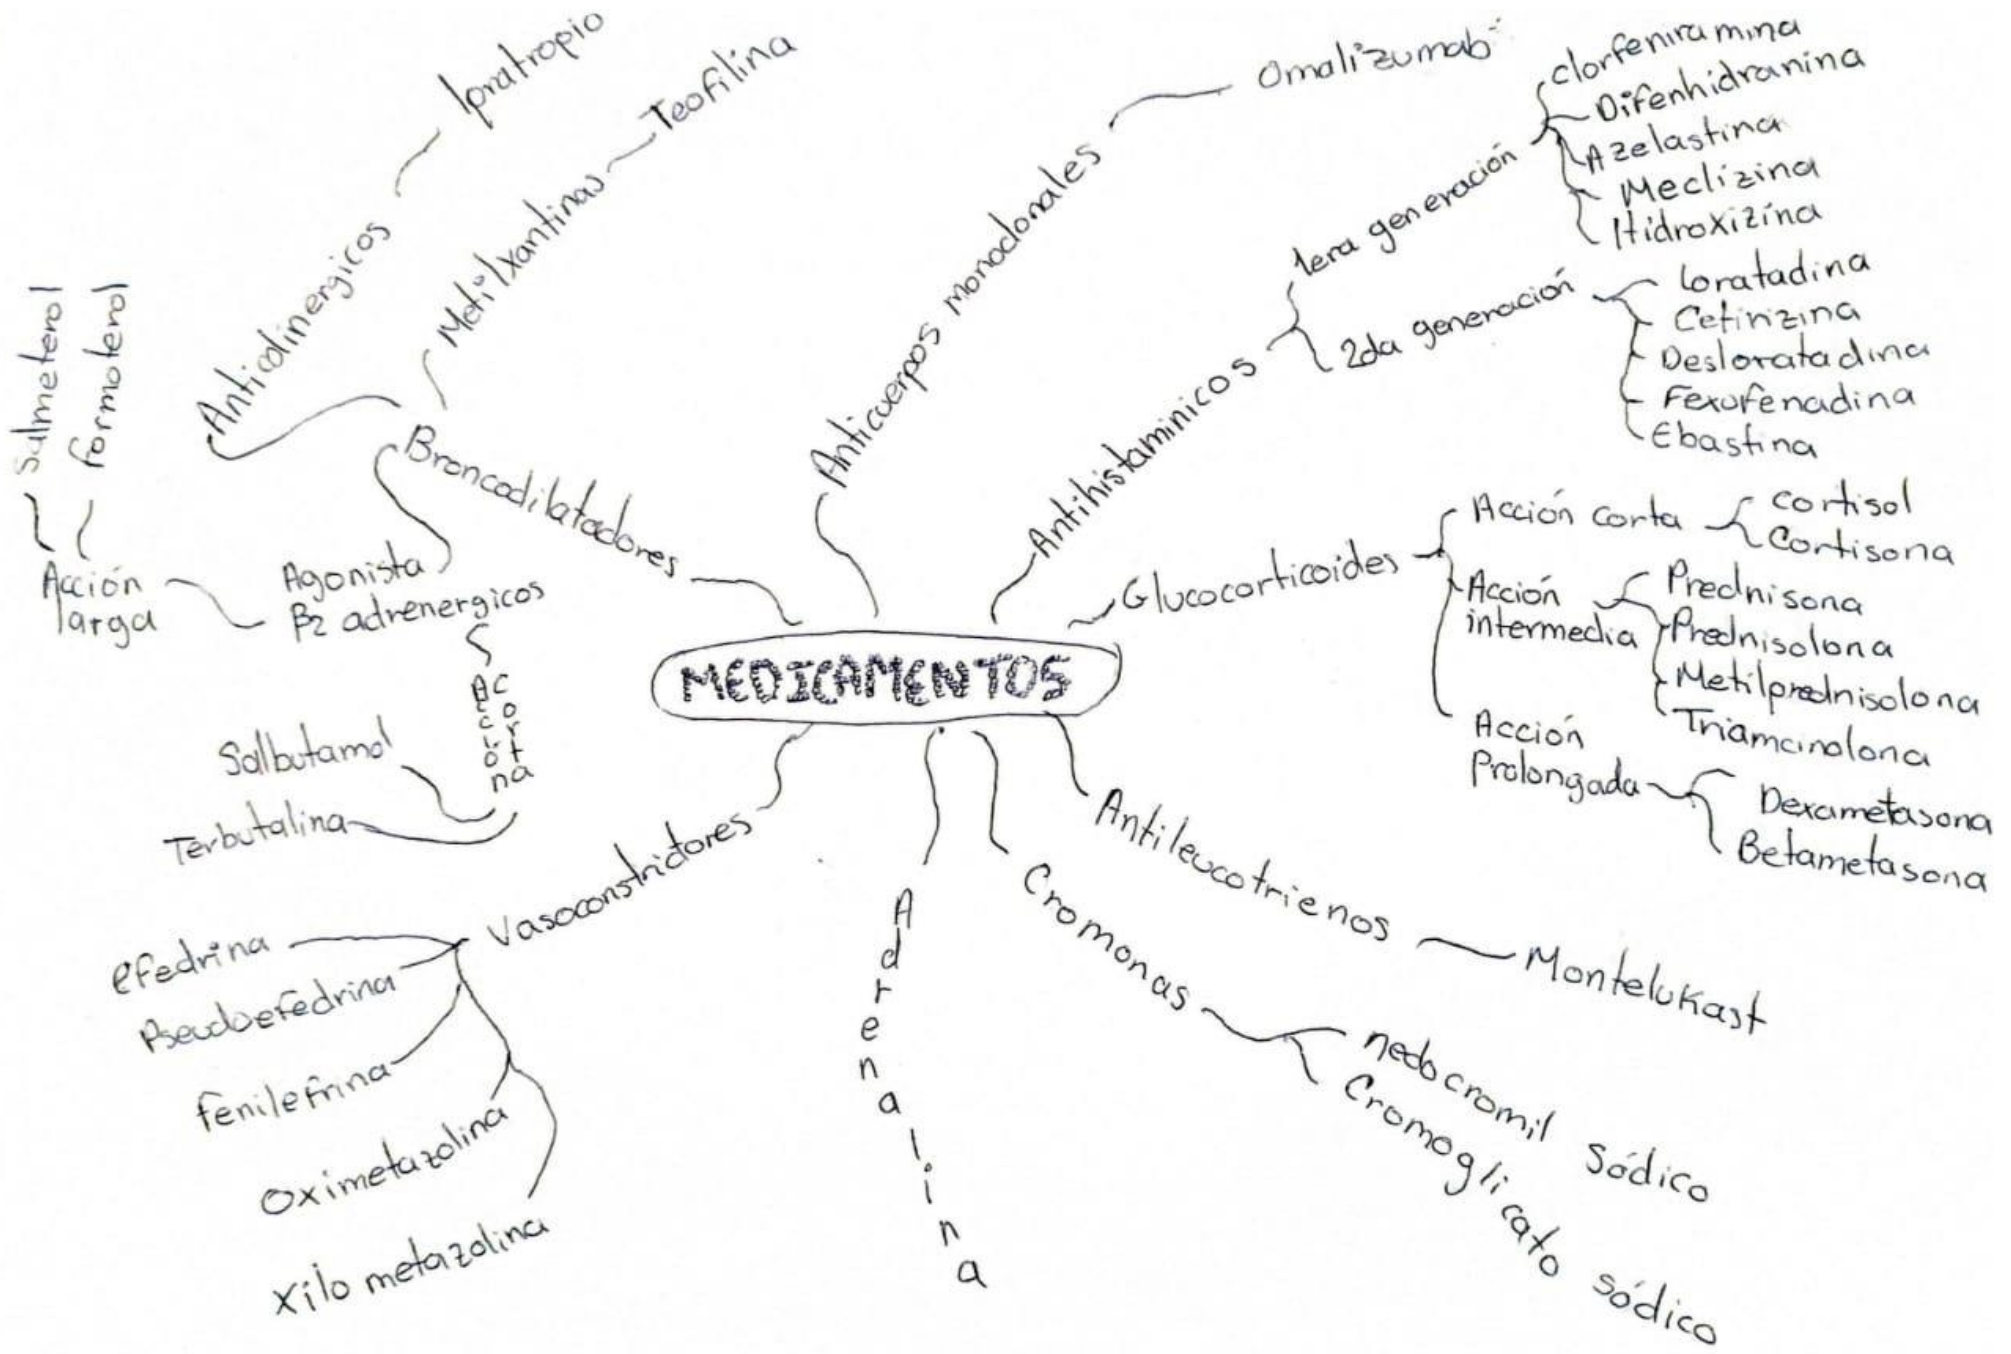 MEDICAMENTOS
Broncodilatadores
Anticolinergicos
Ipratropio
Metilxantinas
Teofilina
Agonista
β2 adrenergicos
Acción
larga
Salmeterol
formoterol
Acción
corta
Salbutamol
Terbutalina
Anticuerpos monoclonales
Omalizumab
Antihistaminicos
1era generación
clorfeniramina
Difenhidranina
Azelastina
Meclizina
Hidroxizina
2da generación
loratadina
Cetirizina
Desloratadina
Fexofenadina
Ebastina
Glucocorticoides
Acción corta
cortisol
Cortisona
Acción
intermedia
Prednisona
Prednisolona
Metilprednisolona
Triamcinolona
Acción
Prolongada
Dexametasona
Betametasona
Antileucotrienos
Montelukast
Cromonas
nedocromil sódico
Cromoglicato sódico
Adrenalina
Vasoconstrictores
efedrina
Pseudoefedrina
fenilefrina
Oximetazolina
Xilo metazolina